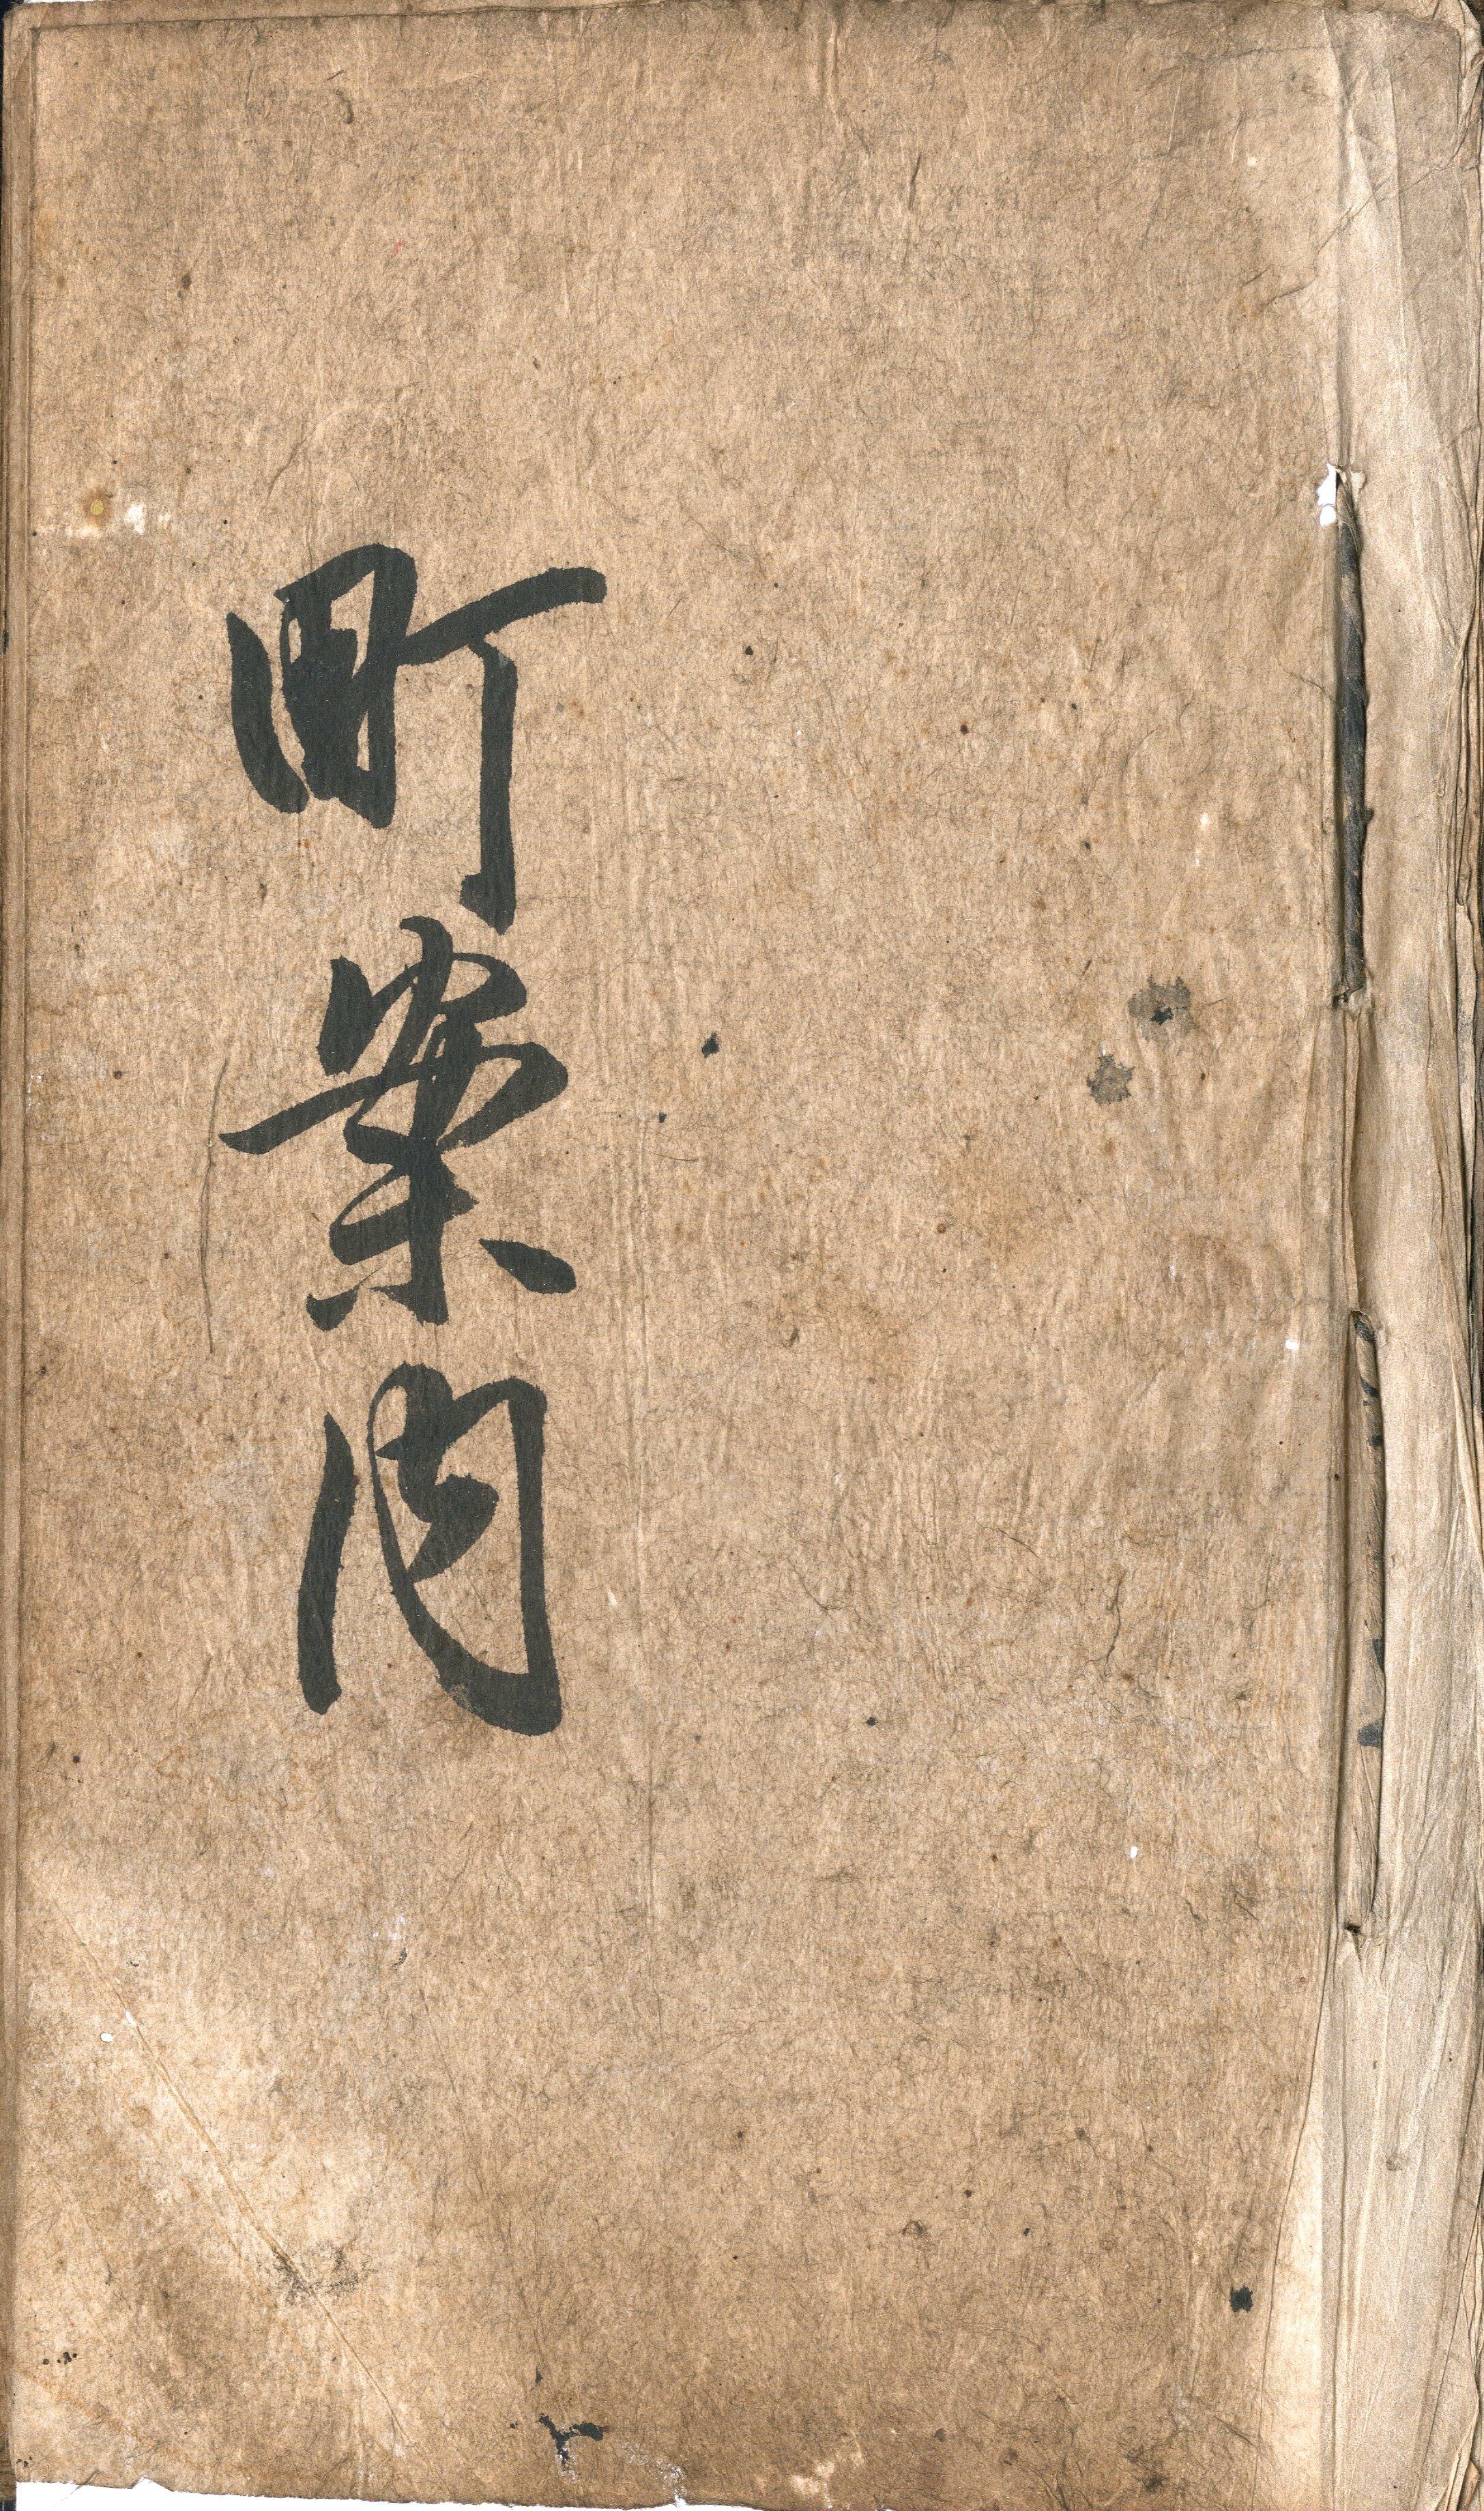 町案内